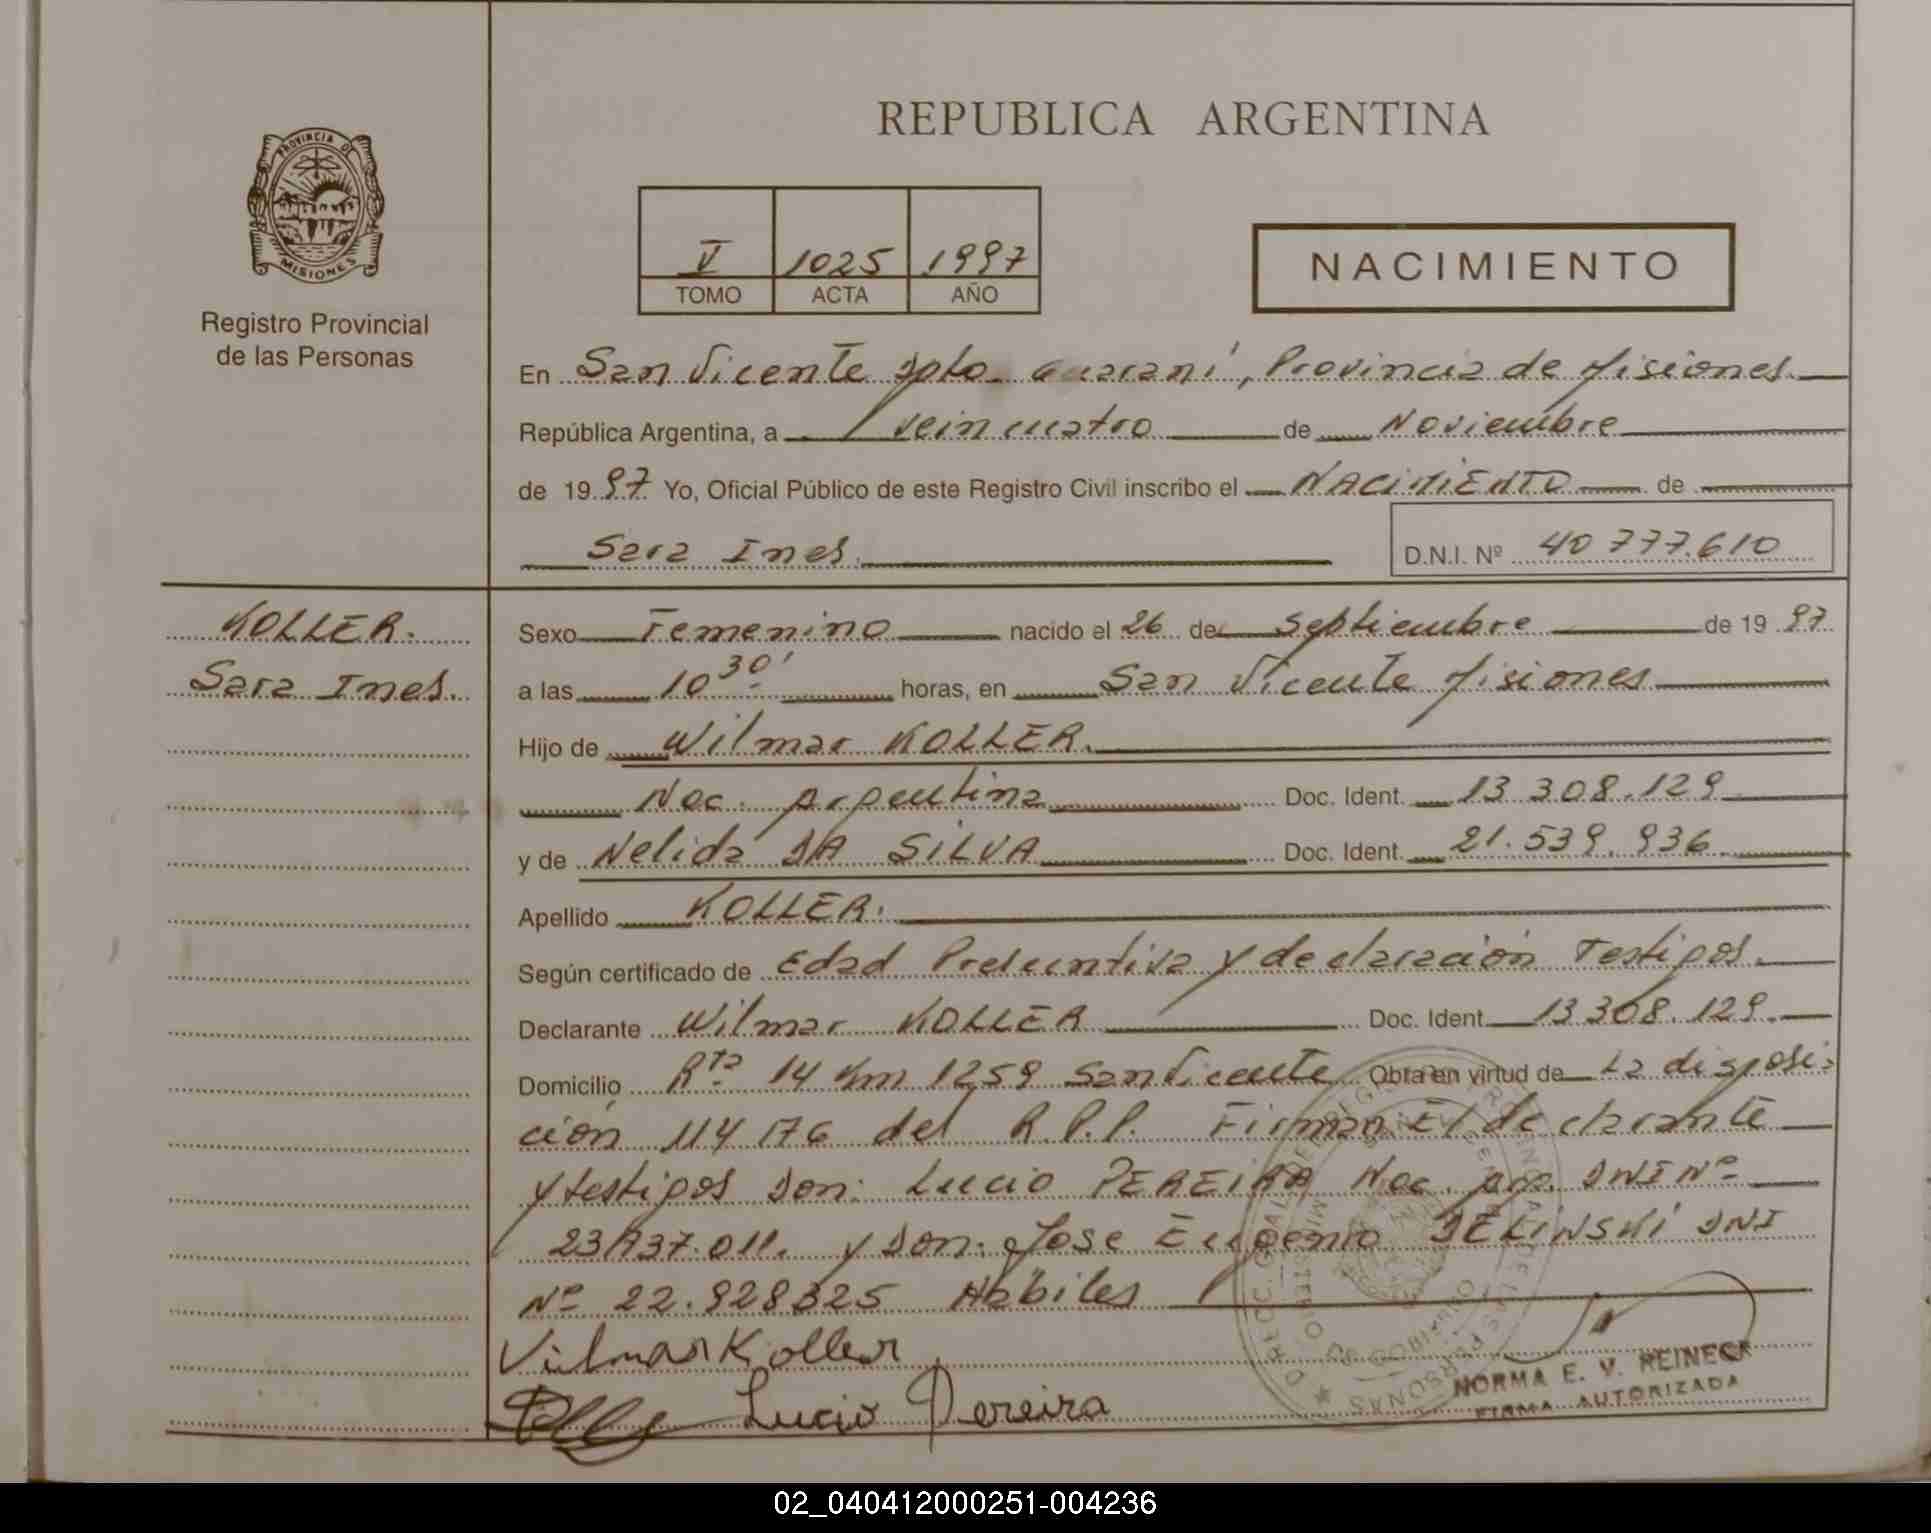 REPUBLICA ARGENTINA
PROVINCIA DE
MISIONES
Registro Provincial
de las Personas
V 1025 1997
TOMO ACTA AÑO
NACIMIENTO
En San Vicente Dpto. Guaraní, Provincia de Misiones.
República Argentina, a veincuatro de Noviembre
de 1997 Yo, Oficial Público de este Registro Civil inscribo el NACIMIENTO de
Sara Ines.
D.N.I. Nº 40 777.610
KOLLER.
Sara Ines.
Sexo Femenino nacido el 26 de Septiembre de 1997.
a las 10 30' horas, en San Vicente Misiones
Hijo de Wilmar KOLLER.
Nac. Argentina Doc. Ident. 13 308.129
y de Nelida DA SILVA Doc. Ident. 21.539.936
Apellido KOLLER.
Según certificado de Edad Presuntiva y declaración Testigos.
Declarante Wilmar KOLLER Doc. Ident. 13 308.129.
Domicilio Rta 14 Km 1259 San Vicente Obra en virtud de La disposi-
ción 114/76 del R.P.P. Firman El declarante
y testigos Don: Lucio PEREIRA Nac. Arg. DNI Nº
23.937.011. y Don: Jose Eugenio ZELINSKI DNI
Nº 22.928325 Habiles
Vilmar Koller
Lucio Pereira
NORMA E. V. REINECK
FIRMA AUTORIZADA
02_040412000251-004236